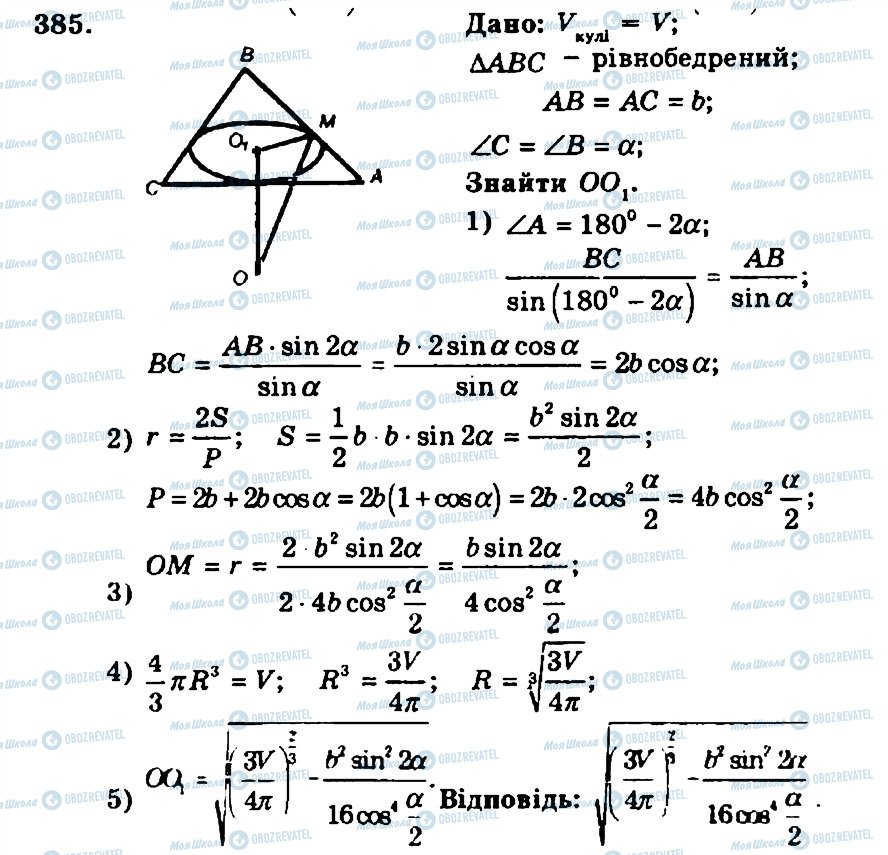 385.
Дано: V кулі = V;
ΔABC – рівнобедрений;
AB = AC = b;
∠C = ∠B = α;
Знайти OO₁.
B
M
O₁
C
A
O
1) ∠A = 180⁰ − 2α;
BC / sin(180⁰ − 2α) = AB / sin α;
BC = AB · sin 2α / sin α = b · 2 sin α cos α / sin α = 2b cos α;
2) r = 2S / P; S = 1/2 b · b · sin 2α = b² sin 2α / 2;
P = 2b + 2b cos α = 2b(1 + cos α) = 2b · 2cos² α/2 = 4b cos² α/2;
3) OM = r = 2 · b² sin 2α / (2 · 4b cos² α/2) = b sin 2α / (4 cos² α/2);
4) 4/3 πR³ = V; R³ = 3V / 4π; R = ∛(3V / 4π);
5) OO₁ = √((3V / 4π)^(2/3) − b² sin² 2α / (16 cos⁴ α/2)). Відповідь: √((3V / 4π)^(2/3) − b² sin² 2α / (16 cos⁴ α/2)).
Моя Школа OBOZREVATEL